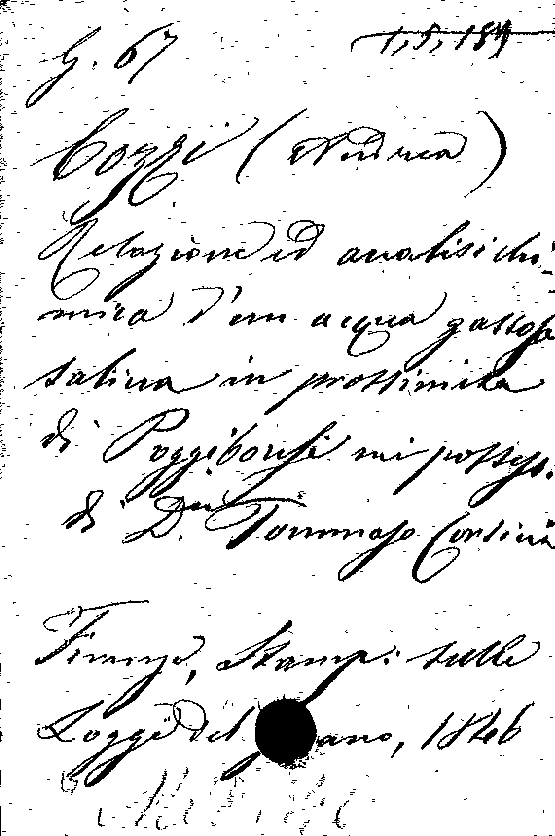 G. 67 1, 5, 184
Cozzi (Andrea)
Relazione ed analisi chi-
mica d'un acqua gassosa
salina in prossimità
di Poggibonsi nei possess.
di Dn Tommaso Corsini
Firenze, Stamp: sulle
Logge del ano, 1846